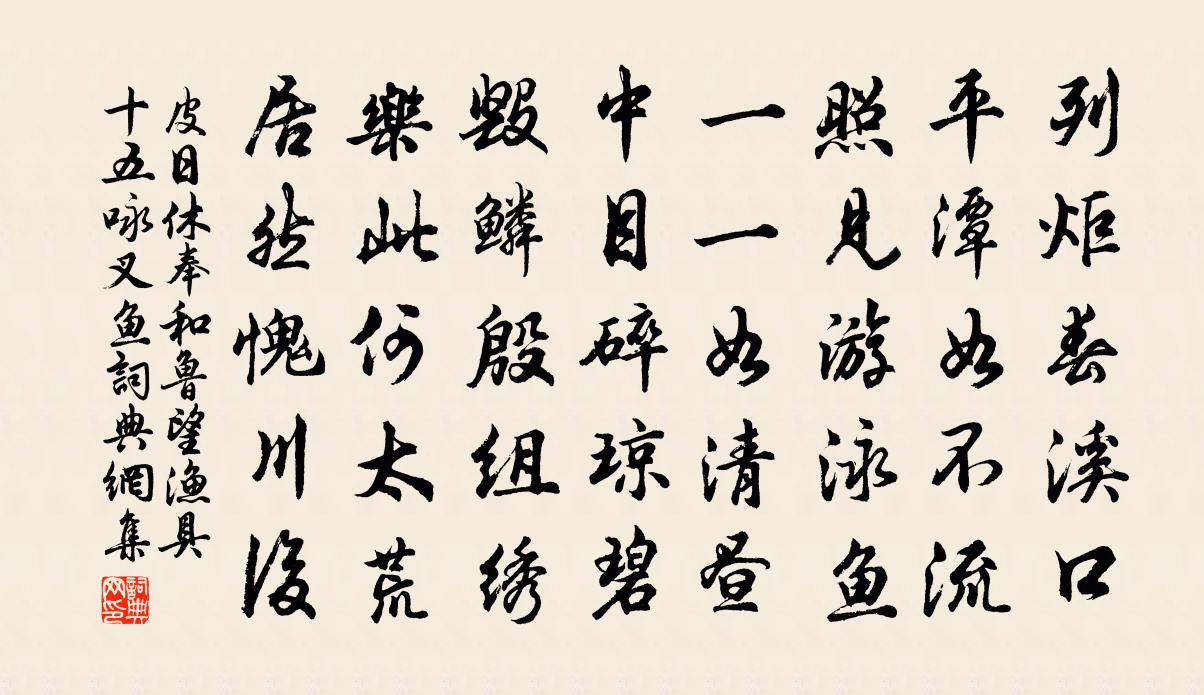 列炬春溪口
平潭如不流
照见游泳鱼
一一如清昼
中目碎琼碧
毁鳞殷组绣
樂此何太荒
居然愧川後
皮日休奉和魯望漁具
十五咏叉鱼詞典網集
詞典网印